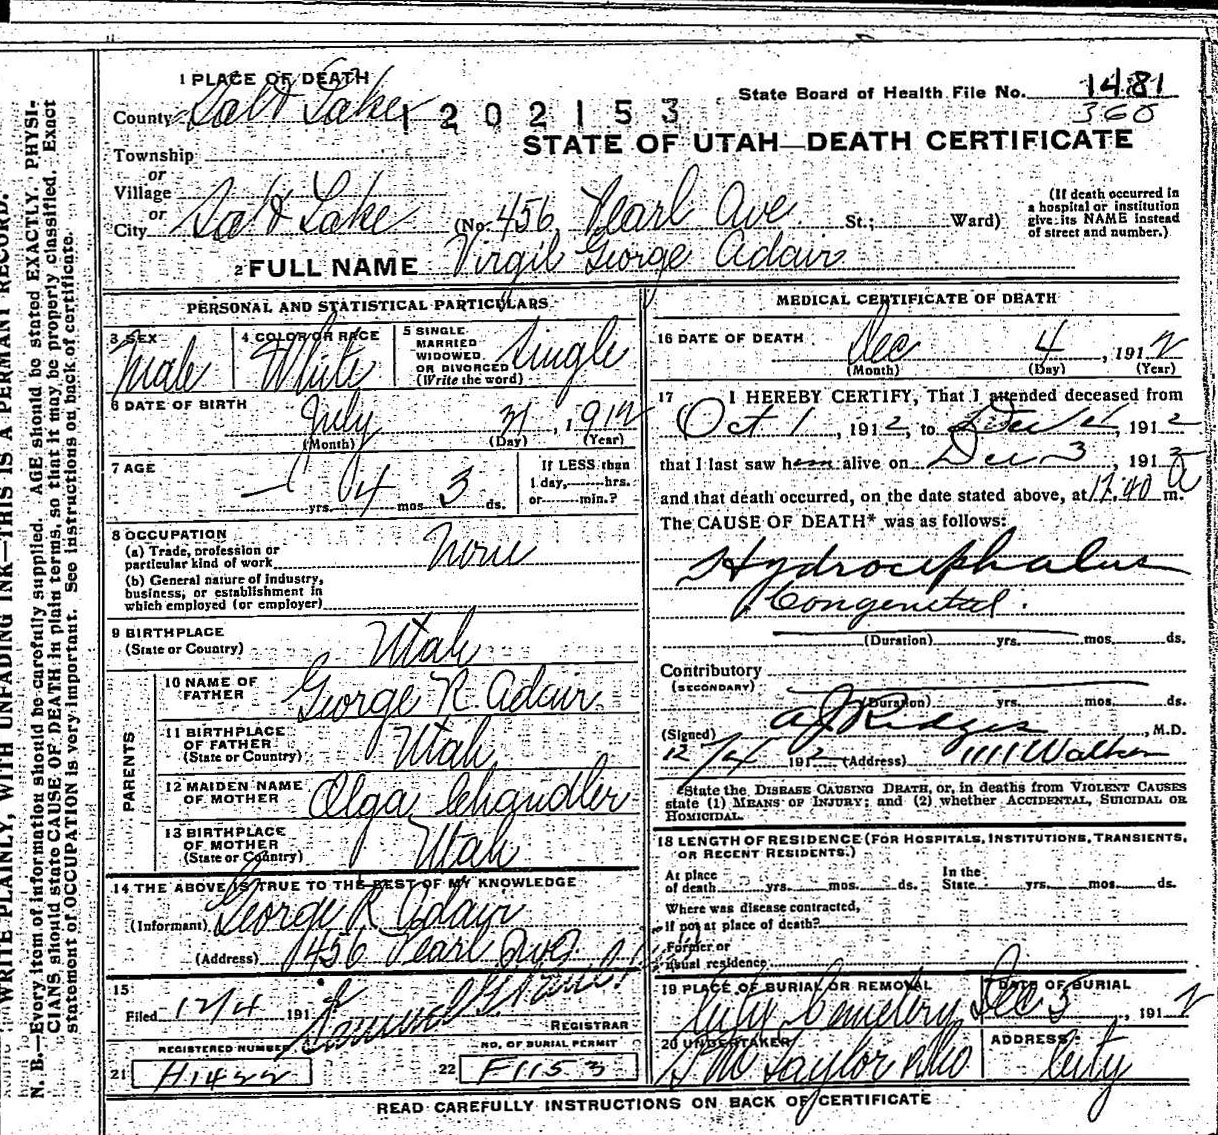 1 PLACE OF DEATH
County Salt Lake 1202153
State Board of Health File No. 1481
360
STATE OF UTAH—DEATH CERTIFICATE
Township
or
Village
or
City Salt Lake (No. 456 Pearl Ave St.; Ward)
(If death occurred in a hospital or institution give its NAME instead of street and number.)
2 FULL NAME Virgil George Adair
PERSONAL AND STATISTICAL PARTICULARS
3 SEX Male
4 COLOR OR RACE White
5 SINGLE MARRIED WIDOWED OR DIVORCED (Write the word) Single
6 DATE OF BIRTH July 31, 1912
(Month) (Day) (Year)
7 AGE — yrs. 4 mos. 3 ds.
If LESS than 1 day, hrs. or min.?
8 OCCUPATION None
(a) Trade, profession or particular kind of work
(b) General nature of industry, business, or establishment in which employed (or employer)
9 BIRTHPLACE (State or Country) Utah
PARENTS
10 NAME OF FATHER George R Adair
11 BIRTHPLACE OF FATHER (State or Country) Utah
12 MAIDEN NAME OF MOTHER Olga Chandler
13 BIRTHPLACE OF MOTHER (State or Country) Utah
14 THE ABOVE IS TRUE TO THE BEST OF MY KNOWLEDGE
(Informant) George R Adair
(Address) 456 Pearl Ave
15
Filed 12/4 191
REGISTRAR
REGISTERED NUMBER
21 H1422
NO. OF BURIAL PERMIT
22 F1153
MEDICAL CERTIFICATE OF DEATH
16 DATE OF DEATH Dec 4, 1912
(Month) (Day) (Year)
17 I HEREBY CERTIFY, That I attended deceased from
Oct 1, 1912, to Dec 4, 1912
that I last saw h alive on Dec 3, 191
and that death occurred, on the date stated above, at 12.40 A m.
The CAUSE OF DEATH* was as follows:
Hydrocephalus
Congenital.
(Duration) yrs. mos. ds.
Contributory
(SECONDARY)
(Duration) yrs. mos. ds.
(Signed) A J Ridges, M.D.
12/4 1912 (Address) 1111 Walker
*State the DISEASE CAUSING DEATH, or, in deaths from VIOLENT CAUSES
state (1) MEANS OF INJURY; and (2) whether ACCIDENTAL, SUICIDAL OR
HOMICIDAL.
18 LENGTH OF RESIDENCE (FOR HOSPITALS, INSTITUTIONS, TRANSIENTS,
OR RECENT RESIDENTS.)
At place of death yrs. mos. ds. In the State yrs. mos. ds.
Where was disease contracted,
if not at place of death?
Former or
usual residence
19 PLACE OF BURIAL OR REMOVAL City Cemetery
DATE OF BURIAL Dec 5, 1912
20 UNDERTAKER S M Taylor
ADDRESS City
READ CAREFULLY INSTRUCTIONS ON BACK OF CERTIFICATE
WRITE PLAINLY, WITH UNFADING INK—THIS IS A PERMANT RECORD.
N. B.—Every item of information should be carefully supplied. AGE should be stated EXACTLY. PHYSI-
CIANS should state CAUSE OF DEATH in plain terms, so that it may be properly classified. Exact
statement of OCCUPATION is very important. See instructions on back of certificate.